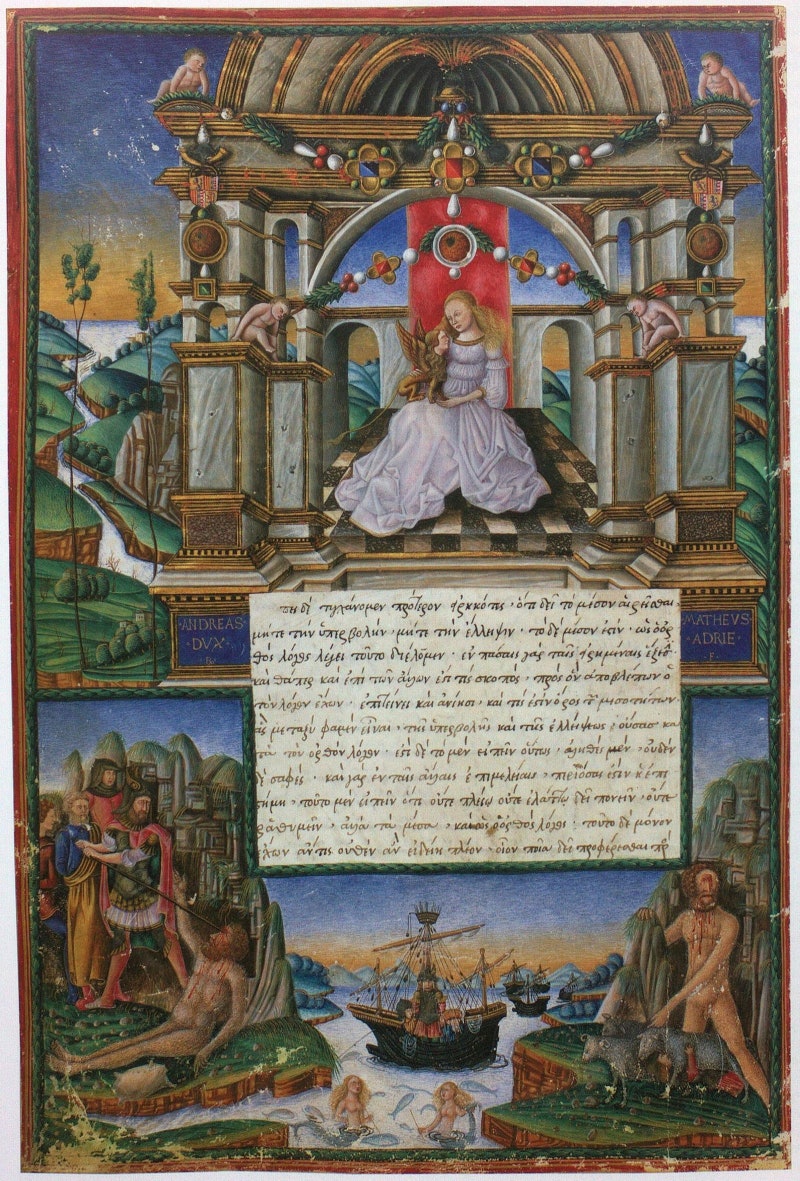 ANDREAS
DVX
MATHEVS
ADRIE
F
δὲ τυγχάνομεν πρότερον εἰρηκότες · ὅτι δεῖ τὸ μέσον αἱρεῖσθαι ·
μήτε τὴν ὑπερβολὴν · μήτε τὴν ἔλλειψιν · τὸ δὲ μέσον ἐστὶν · ὡς ὁ ὀρ
θὸς λόγος λέγει τοῦτο διέλωμεν · ἐν πάσαις γὰρ ταῖς εἰρημέναις ἕξεσι
καθάπερ καὶ ἐπὶ τῶν ἄλλων ἐστί τις σκοπὸς · πρὸς ὃν ἀποβλέπων ὁ
τὸν λόγον ἔχων · ἐπιτείνει καὶ ἀνίησι · καί τις ἐστὶν ὅρος τῶν μεσοτήτων
ἃς μεταξύ φαμεν εἶναι · τῆς ὑπερβολῆς καὶ τῆς ἐλλείψεως · οὔσας κα
τὰ τὸν ὀρθὸν λόγον · ἐστὶ δὲ τὸ μὲν εἰπεῖν οὕτως · ἀληθὲς μὲν · οὐδὲν
δὲ σαφές · καὶ γὰρ ἐν ταῖς ἄλλαις ἐπιμελείαις · περὶ ὅσας ἐστὶν ἐπι
στήμη · τοῦτο μὲν εἰπεῖν ὅτι οὔτε πλείω οὔτε ἐλάττω δεῖ πονεῖν · οὔτε
ῥαθυμεῖν · ἀλλὰ τὰ μέσα · καὶ ὡς ὁ ὀρθὸς λόγος · τοῦτο δὲ μόνον
ἔχων ἄν τις οὐθὲν ἂν εἰδείη πλέον · οἷον ποῖα δεῖ προσφέρεσθαι πρ